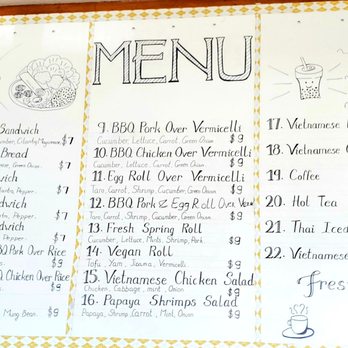 MENU
Sandwich
Cucumber, Cilantro, Mayonnaise $7
Bread
Green Onion $7
Sandwich
Pepper $7
Sandwich
Pepper $7
Sandwich
Pepper. $7
BBQ Pork Over Rice
$9
BBQ Chicken Over Rice
$9
Mung Bean. $9
9. BBQ Pork Over Vermicelli
Cucumber, Lettuce, Carrot, Green Onion $9
10. BBQ Chicken Over Vermicelli
Cucumber, Lettuce, Carrot, Green Onion $9
11. Egg Roll Over Vermicelli
Taro, Carrot, Shrimp, Cucumber, Green Onion $9
12. BBQ Pork & Egg Roll Over Verm
Taro, Carrot, Shrimp, Cucumber, Green Onion $9
13. Fresh Spring Roll
Cucumber, Lettuce, Mints, Shrimp, Pork $9
14. Vegan Roll
Tofu, Yam, Jicama, Vermicelli $9
15. Vietnamese Chicken Salad
Chicken, Cabbage, mint, Onion $9
16. Papaya Shrimps Salad
Papaya, Shrimp, Carrot, Mint, Onion $9
17. Vietnamese
18. Vietnamese
19. Coffee
20. Hot Tea
21. Thai Iced
22. Vietnamese
Fres